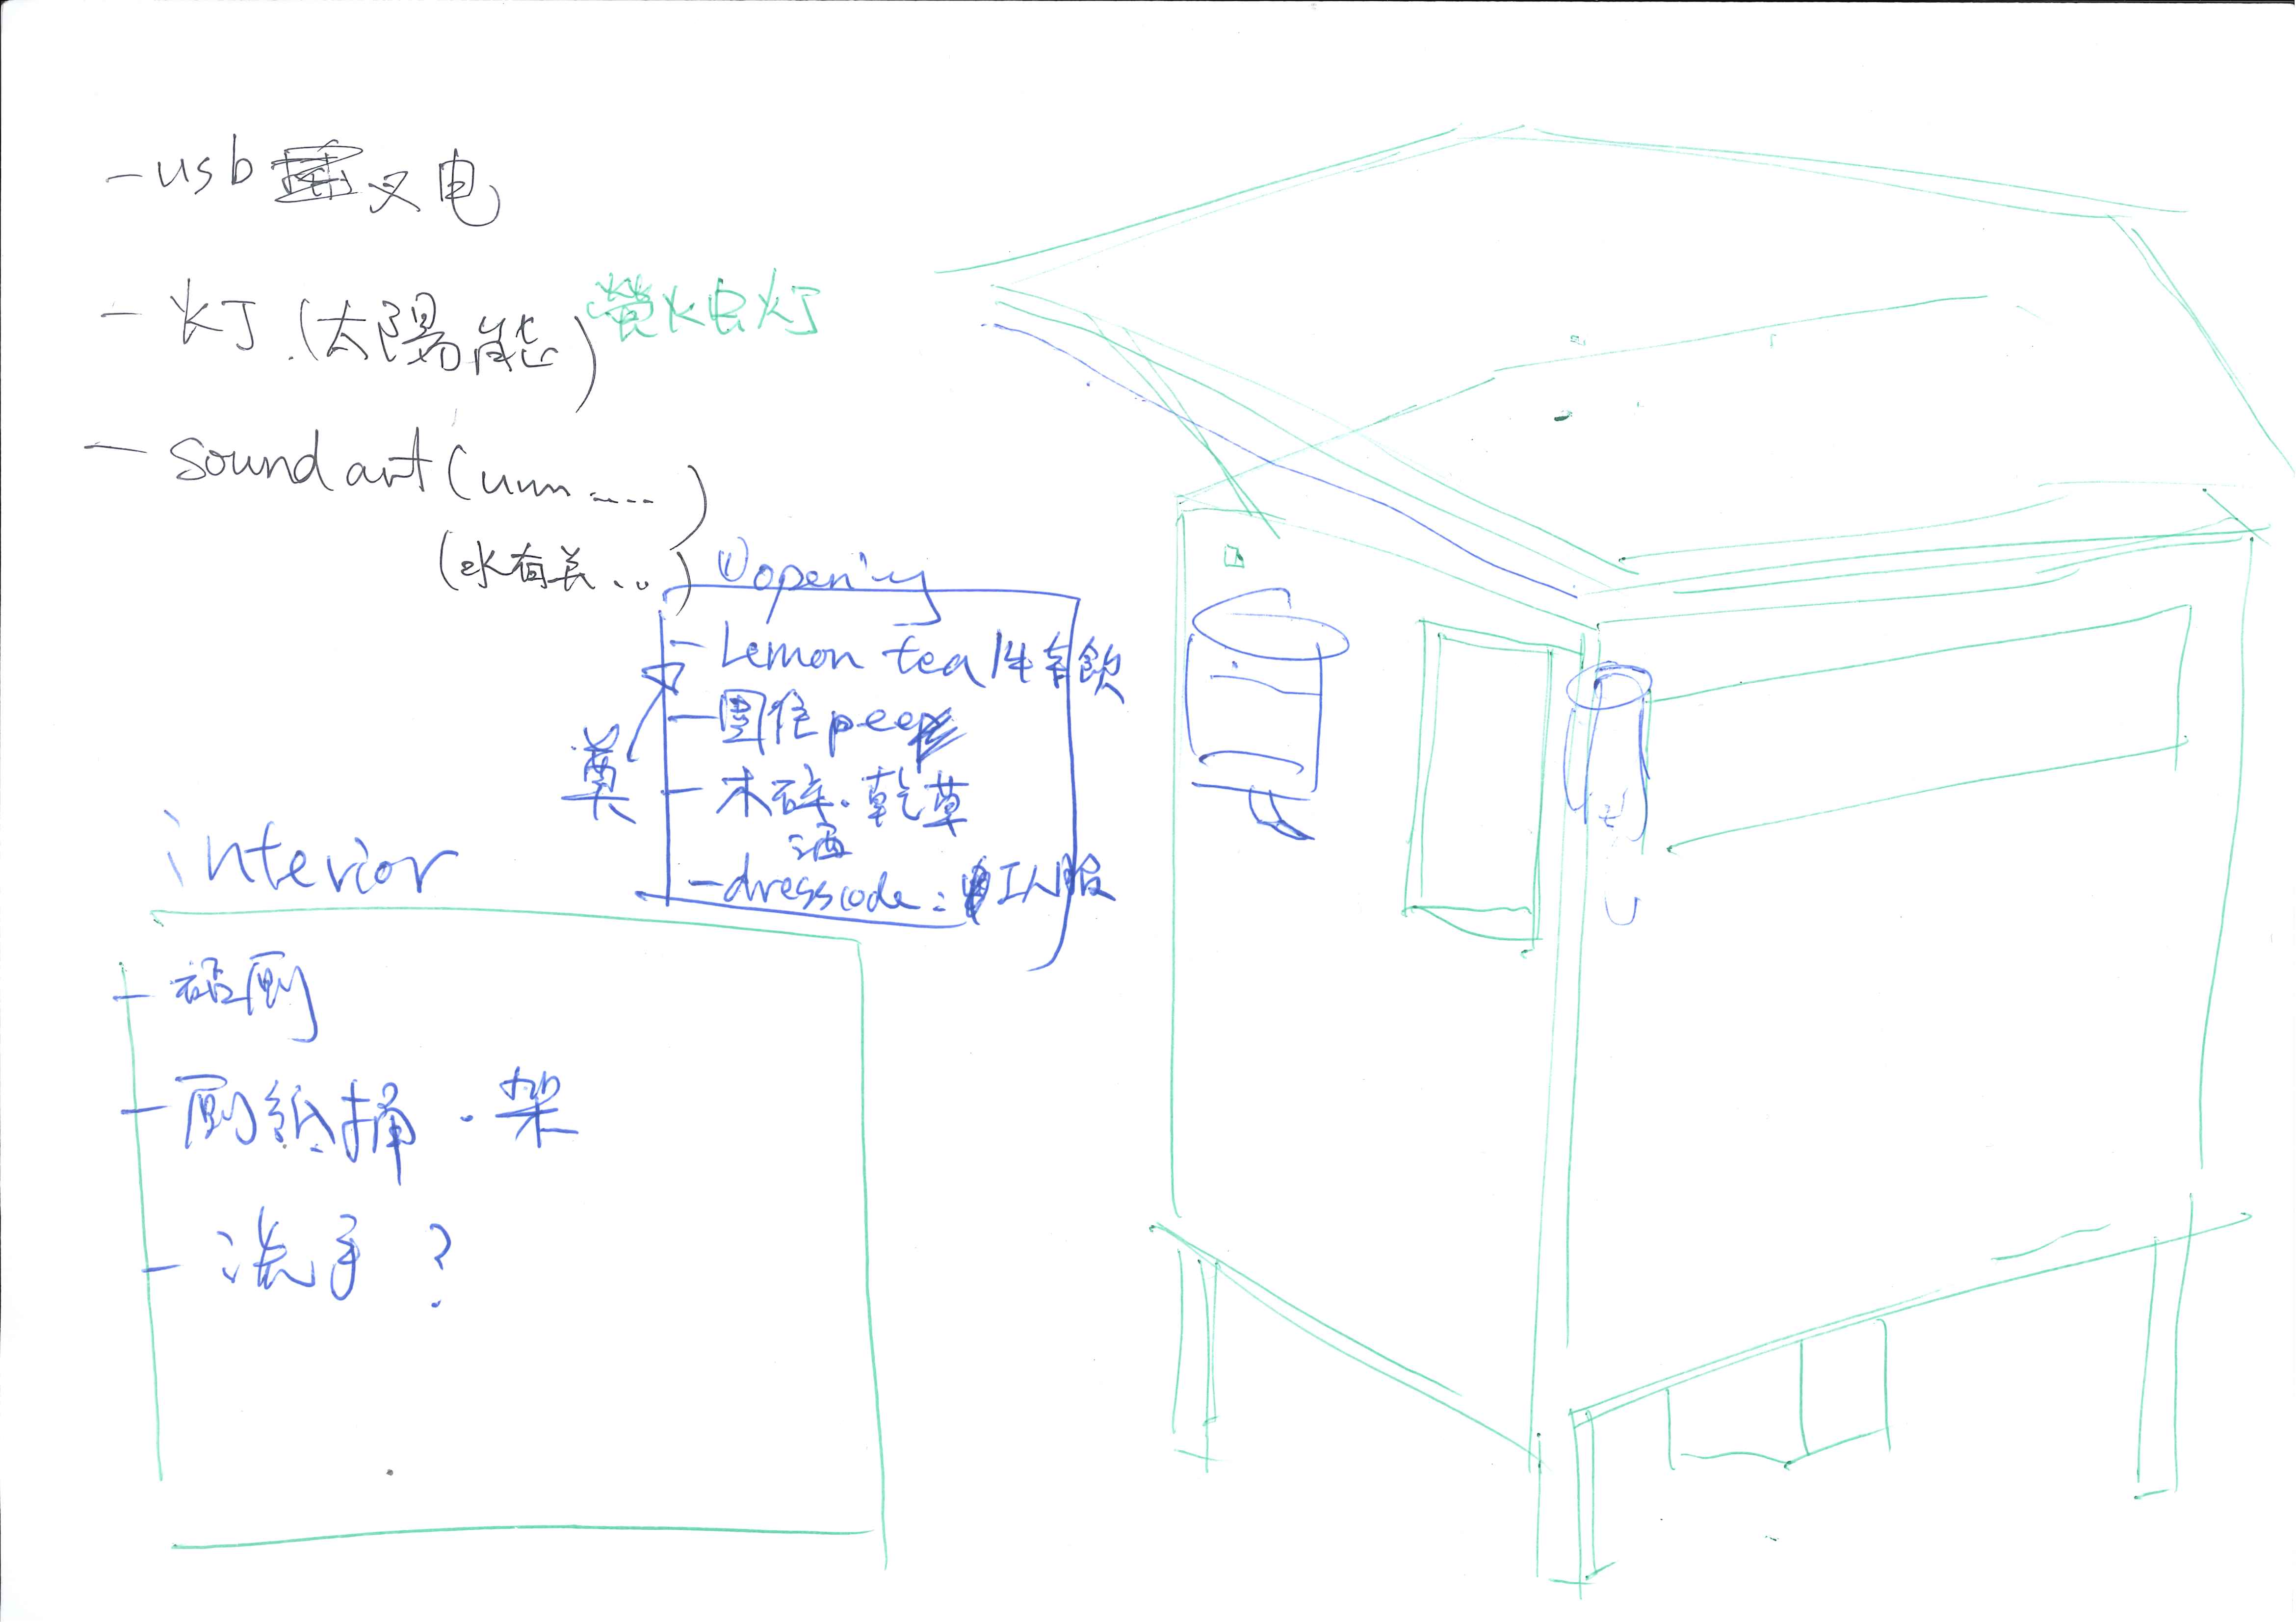 - usb 叉电
- 灯 (太陽能) 螢火虫灯
- sound art (umm .....
(水有关...)
① opening
- Lemon tea
- 圍住 pee
- 木碎. 乾草
洒
- dresscode : 工人服
糞
interior
- 設厠
- 厠紙桶 . 架
- 洗手 ?